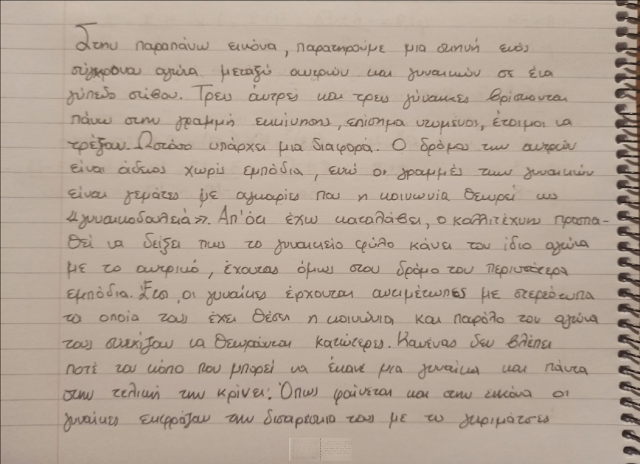 Στην παραπάνω εικόνα, παρατηρούμε μια σκηνή ενός
σύγχρονου αγώνα μεταξύ αντρών και γυναικών σε ένα
γήπεδο στίβου. Τρεις άντρες και τρεις γύναικες βρίσκονται
πάνω στην γραμμή εκκίνησης, επίσημα ντυμένοι, έτοιμοι να
τρέξουν. Ωστόσο υπάρχει μια διαφορά. Ο δρόμος των αντρών
είναι άδειος χωρίς εμπόδια, ενώ οι γραμμές των γυναικών
είναι γεμάτες με αγγαρίες που η κοινωνία θεωρεί ως
«γυναικοδουλειά». Απ'ότι έχω καταλάβει, ο καλλιτέχνης προσπα-
θεί να δείξει πως το γυναικείο φύλο κάνει τον ίδιο αγώνα
με το αντρικό, έχοντας όμως στον δρόμο του περισσότερα
εμπόδια. Έτσι, οι γυναίκες έρχονται αντιμέτωπες με στερεότυπα
τα οποία τους έχει θέσει η κοινωνία και παρόλο τον αγώνα
τους συνεχίζουν να θεωρούνται κατώτερες. Κανένας δεν βλέπει
ποτέ τον κόπο που μπορεί να έκανε μια γυναίκα και πάντα
στην τελική την κρίνει. Όπως φαίνεται και στην εικόνα οι
γυναίκες εκφράζουν την δυσαρέσκεια τους με τις γκριμάτσες